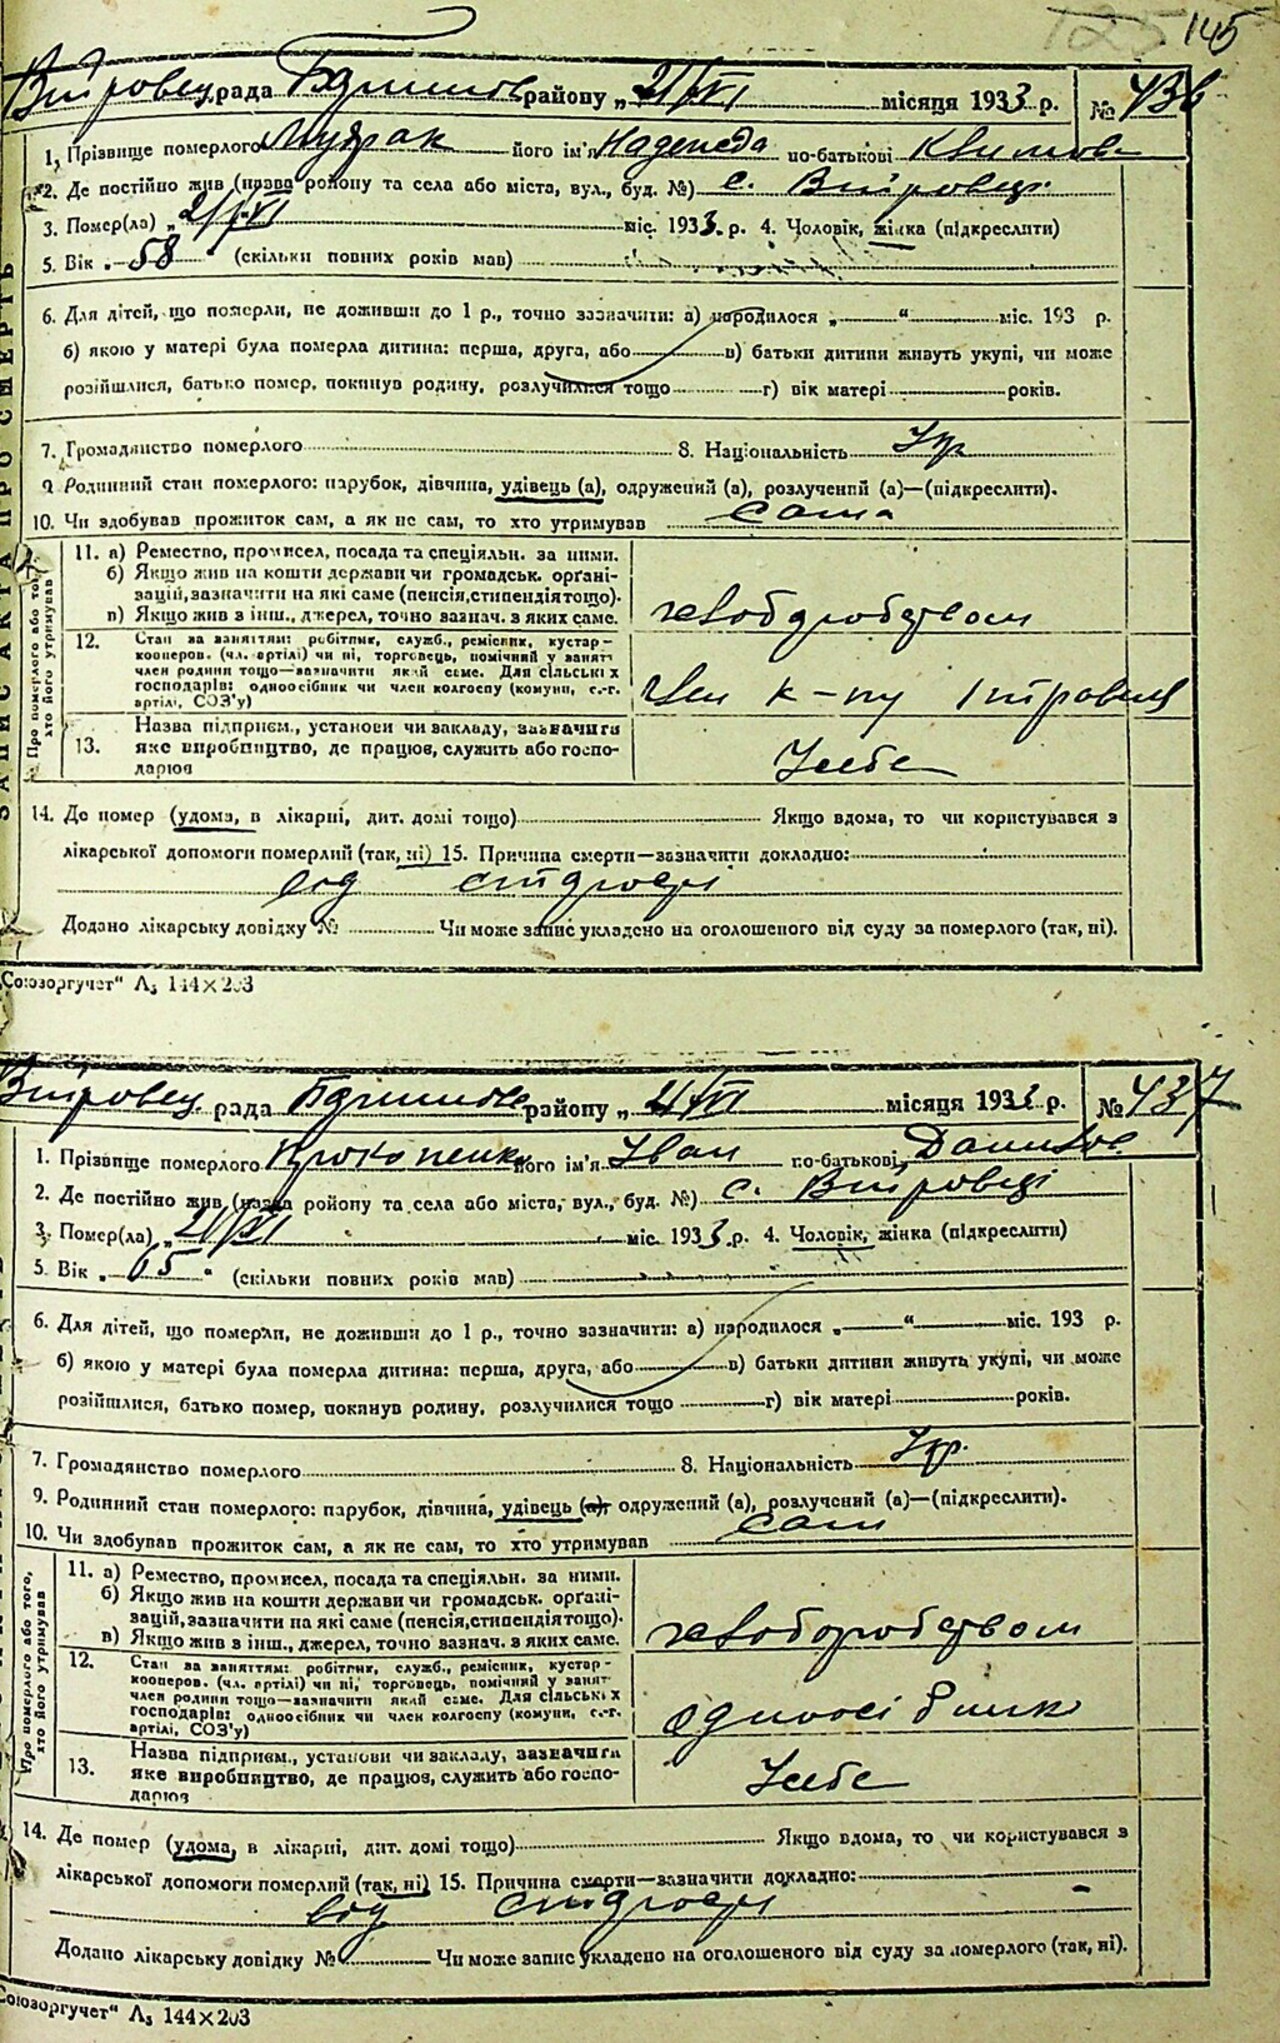 125 145
Вітровец. рада району „ 21/VI місяця 1933 р. № 436
1. Прізвище померлого Мудрак його ім'я Надежда по-батькові
2. Де постійно жив (назва району та села або міста, вул., буд. №) с. Вітровеці
3. Помер(ла) „ 21/VI міс. 1933. р. 4. Чоловік, жінка (підкреслити)
5. Вік „ 58 " (скільки повних років мав)
6. Для дітей, що померли, не доживши до 1 р., точно зазначити: а) народилося „ " міс. 193 р.
б) якою у матері була померла дитина: перша, друга, або в) батьки дитини живуть укупі, чи може
розійшлися, батько помер, покинув родину, розлучилися тощо г) вік матері років.
7. Громадянство померлого 8. Національність Укр
9. Родинний стан померлого: парубок, дівчина, удівець (а), одружений (а), розлучений (а)—(підкреслити).
10. Чи здобував прожиток сам, а як не сам, то хто утримував сама
ЗАПИС АКТА ПРО СМЕРТЬ
Про померлого або того, хто його утримував
11. а) Ремество, промисел, посада та спеціяльн. за ними.
б) Якщо жив на кошти держави чи громадськ. органі-
зацій, зазначити на які саме (пенсія, стипендія тощо).
в) Якщо жив з інш., джерел, точно зазнач. з яких саме.
хлібороб­ством
12. Стан за заняттям: робітник, служб., ремісник, кустар-
кооперов. (чл. артілі) чи ні, торговець, помічний у занят.
член родини тощо—зазначити який саме. Для сільських
господарів: одноосібник чи член колгоспу (комуни, с.-г.
артілі, СОЗ'у)
Член к-пу
13. Назва підприєм., установи чи закладу, зазначити
яке виробництво, де працює, служить або госпо-
дарює
У себе
14. Де помер (удома, в лікарні, дит. домі тощо) Якщо вдома, то чи користувався з
лікарської допомоги померлий (так, ні) 15. Причина смерти—зазначити докладно:
од старості
Додано лікарську довідку № Чи може запис укладено на оголошеного від суду за померлого (так, ні).
„Союзоргучет" А₅ 144×203
Вітровец. рада району „ 21/VI місяця 1933 р. № 437
1. Прізвище померлого Прокопенко його ім'я Іван по-батькові Данилов.
2. Де постійно жив (назва району та села або міста, вул., буд. №) с. Вітровеці
3. Помер(ла) „ 21/VI міс. 1933. р. 4. Чоловік, жінка (підкреслити)
5. Вік „ 65 " (скільки повних років мав)
6. Для дітей, що померли, не доживши до 1 р., точно зазначити: а) народилося „ " міс. 193 р.
б) якою у матері була померла дитина: перша, друга, або в) батьки дитини живуть укупі, чи може
розійшлися, батько помер, покинув родину, розлучилися тощо г) вік матері років.
7. Громадянство померлого 8. Національність Укр.
9. Родинний стан померлого: парубок, дівчина, удівець (а), одружений (а), розлучений (а)—(підкреслити).
10. Чи здобував прожиток сам, а як не сам, то хто утримував сам
Про померлого або того, хто його утримував
11. а) Ремество, промисел, посада та спеціяльн. за ними.
б) Якщо жив на кошти держави чи громадськ. органі-
зацій, зазначити на які саме (пенсія, стипендія тощо).
в) Якщо жив з інш., джерел, точно зазнач. з яких саме.
хлібороб­ством
12. Стан за заняттям: робітник, служб., ремісник, кустар-
кооперов. (чл. артілі) чи ні, торговець, помічний у занят.
член родини тощо—зазначити який саме. Для сільських
господарів: одноосібник чи член колгоспу (комуни, с.-г.
артілі, СОЗ'у)
одноосібник
13. Назва підприєм., установи чи закладу, зазначити
яке виробництво, де працює, служить або госпо-
дарює
У себе
14. Де помер (удома, в лікарні, дит. домі тощо) Якщо вдома, то чи користувався з
лікарської допомоги померлий (так, ні) 15. Причина смерти—зазначити докладно:
від старості
Додано лікарську довідку № Чи може запис укладено на оголошеного від суду за померлого (так, ні).
„Союзоргучет" А₅ 144×203